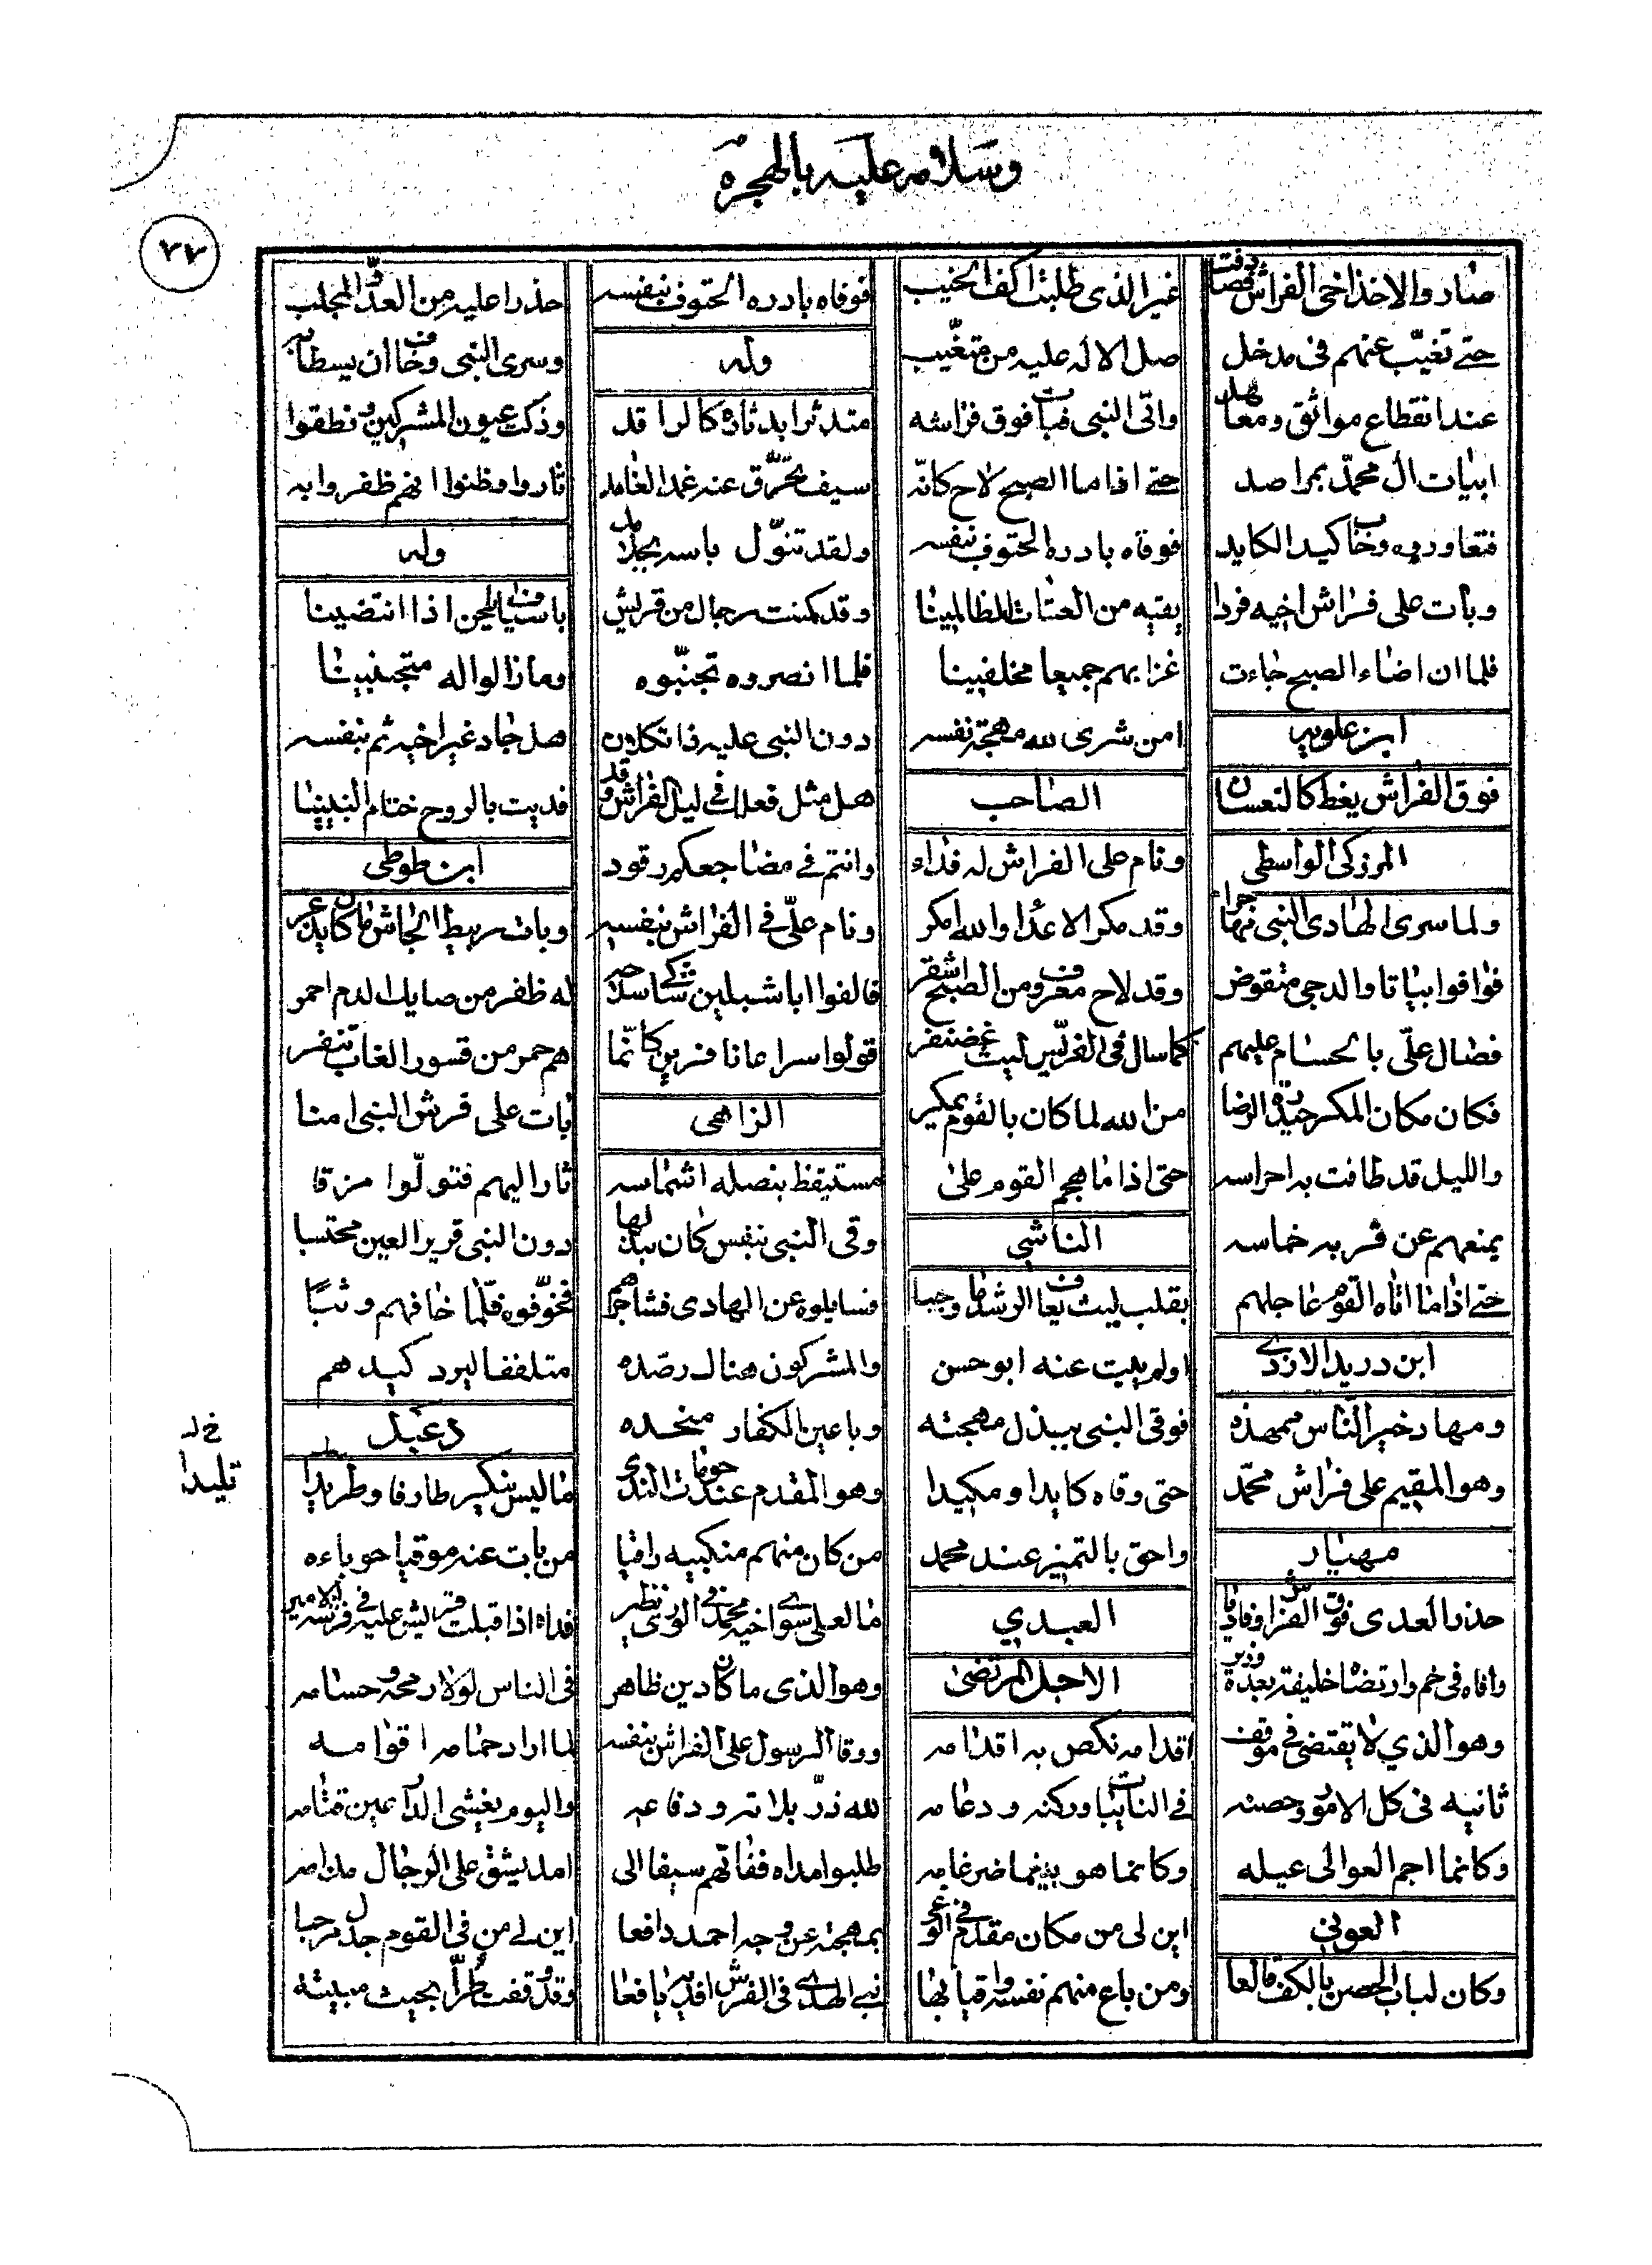 وسلامه عليه بالهجرة
٧٧
صاروا لاخذ اخى الفراش فصادفت
حتى تغيب عنهم فى مدخل
عند انقطاع مواثق ومعاهد
ابيات ال محمد بمراصد
فتعاوريه وخاب كيد الكايد
وبات على فراش اخيه فردا
فلما ان اضاء الصبح جاءت
ابن علويه
فوق الفراش يغط كالنعسان
المرزكى الواسطى
ولما سرى الهادى النبى مهاجرا
فوافوا بياتا والدجى متقوض
فصال على بالحسام عليهم
فكان مكان المكر حيدرة الرضا
والليل قد طافت به احراسه
يمنعهم عن قربه خماسه
حتى اذا ما اتاه القوم عاجلهم
ابن دريد الازدى
ومهاد خير الناس ممهده
وهو المقيم على فراش محمد
مهيار
حذر العدى فوق الفراش وفاديا
وافاه فى خم وارتضاه خليفة بعده ووزير
وهو الذي لا يقتضى فى موقف
ثانيه فى كل الامور وحصنه
وكانما اجم العوالى غيله
العونى
وكان لباب الحصن بالكف قالعا
غير الذى طلبت اكف الخيب
صلى الاله عليه من متغيب
واتى النبى فبات فوق فراشه
حتى اذا ما الصبح لاح كانه
فوقاه بادره الحتوف بنفسه
يقيه من العتاة الظالمينا
غزا بهم جميعا مخلفينا
امن شرى لله مهجة نفسه
الصاحب
ونام على الفراش له فداء
وقد مكر الاعدا والله امكر
وقد لاح معروف من الصبح اشقر
كما سال فى العريس ليث غضنفر
من الله لما كان بالقوم يمكر
حتى اذا ما هجم القوم على
الناشى
بقلب ليث يعاف الرشد ما وجبا
اولم يبت عنه ابو حسن
فوقى النبى ببذل مهجته
حتى وقاه كايدا ومكيدا
واحق بالتميز عند محمد
العبدي
الاجل المرتضى
اقدامه نكص به اقدامه
فى النايبات وركنه ودعامه
وكانما هو بينها ضرغامه
اين لى من مكان مقدم فى الوغى
ومن باع منهم نفسه واقيا بها
فوقاه بادره الحتوف بنفسه
وله
متدثرا بدثاره كالراقد
سيف تخرق عنه غمد الغامد
ولقد تنول باسه بجلامد
وقد كمنت رجال من قريش
فلما انصروه تجنبوه
دون النبى عليه ذا تكلان
هل مثل فعلك فى ليل الفراش وقد
وانتم فى مضاجعكم رقود
ونام على فى الفراش بنفسه
فالفوا ابا شبلين شاكى سلاحه
فولوا سراعا نافرين كانما
الزاهى
مستيقظ بنصله اشماسه
وقى النبى بنفس كان يبذلها
فسايلوه عن الهادى فشاجرهم
والمشركون هناك رصده
وباعين الكفار منجده
وهو المقدم عند حومات الندى
من كان منهم منكبيه راقيا
ما لعلى سوى اخيه محمد فى الورى نظير
وهو الذى ما كان دين ظاهر
ووقا الرسول على الفراش بنفسه
لله در بلائه ودفاعه
طلبوا مداه ففاتهم سبقا الى
بمهجته عن وجه احمد دافعا
نبى الهدى فى الفرش افديه يافعا
حذرا عليه من العدو المجلب
وسرى النبى وخاف ان يسطا به
وذكت عيون المشركين وتطقوا
ثاروا وظنوا انهم ظفروا به
وله
باسياف يلحن اذا انتضينا
وما زالوا له متجنبينا
هل جاد غير اخيه ثم بنفسه
فديت بالروح ختام النبيينا
ابن طوطى
وبات ربيط الجاش ما كان يذعر
له ظفر من صايك الدم احمر
هم حمر من قسور الغاب تنفر
بات على فرش النبى امنا
ثار اليهم فتولوا مزقا
دون النبى قرير العين محتسبا
فخوفوه فلما خافهم وثبا
متلففا ليرد كيدهم
دعبل
ما ليس ينكير طارفا وطريدا
خ له
تليدا
من بات عنه موقيا حوباءه
فداه اذا قبلت قريش عليه فى فرشه الامير
فى الناس لولا رمحه وحسامه
لما اراد حمامه اقوامه
واليوم يغشى الدارعين قتامه
امد يشق على الرجال مدامه
اين لى من فى القوم جدل مرحبا
وقد وقفت طرا بحيث مبيته